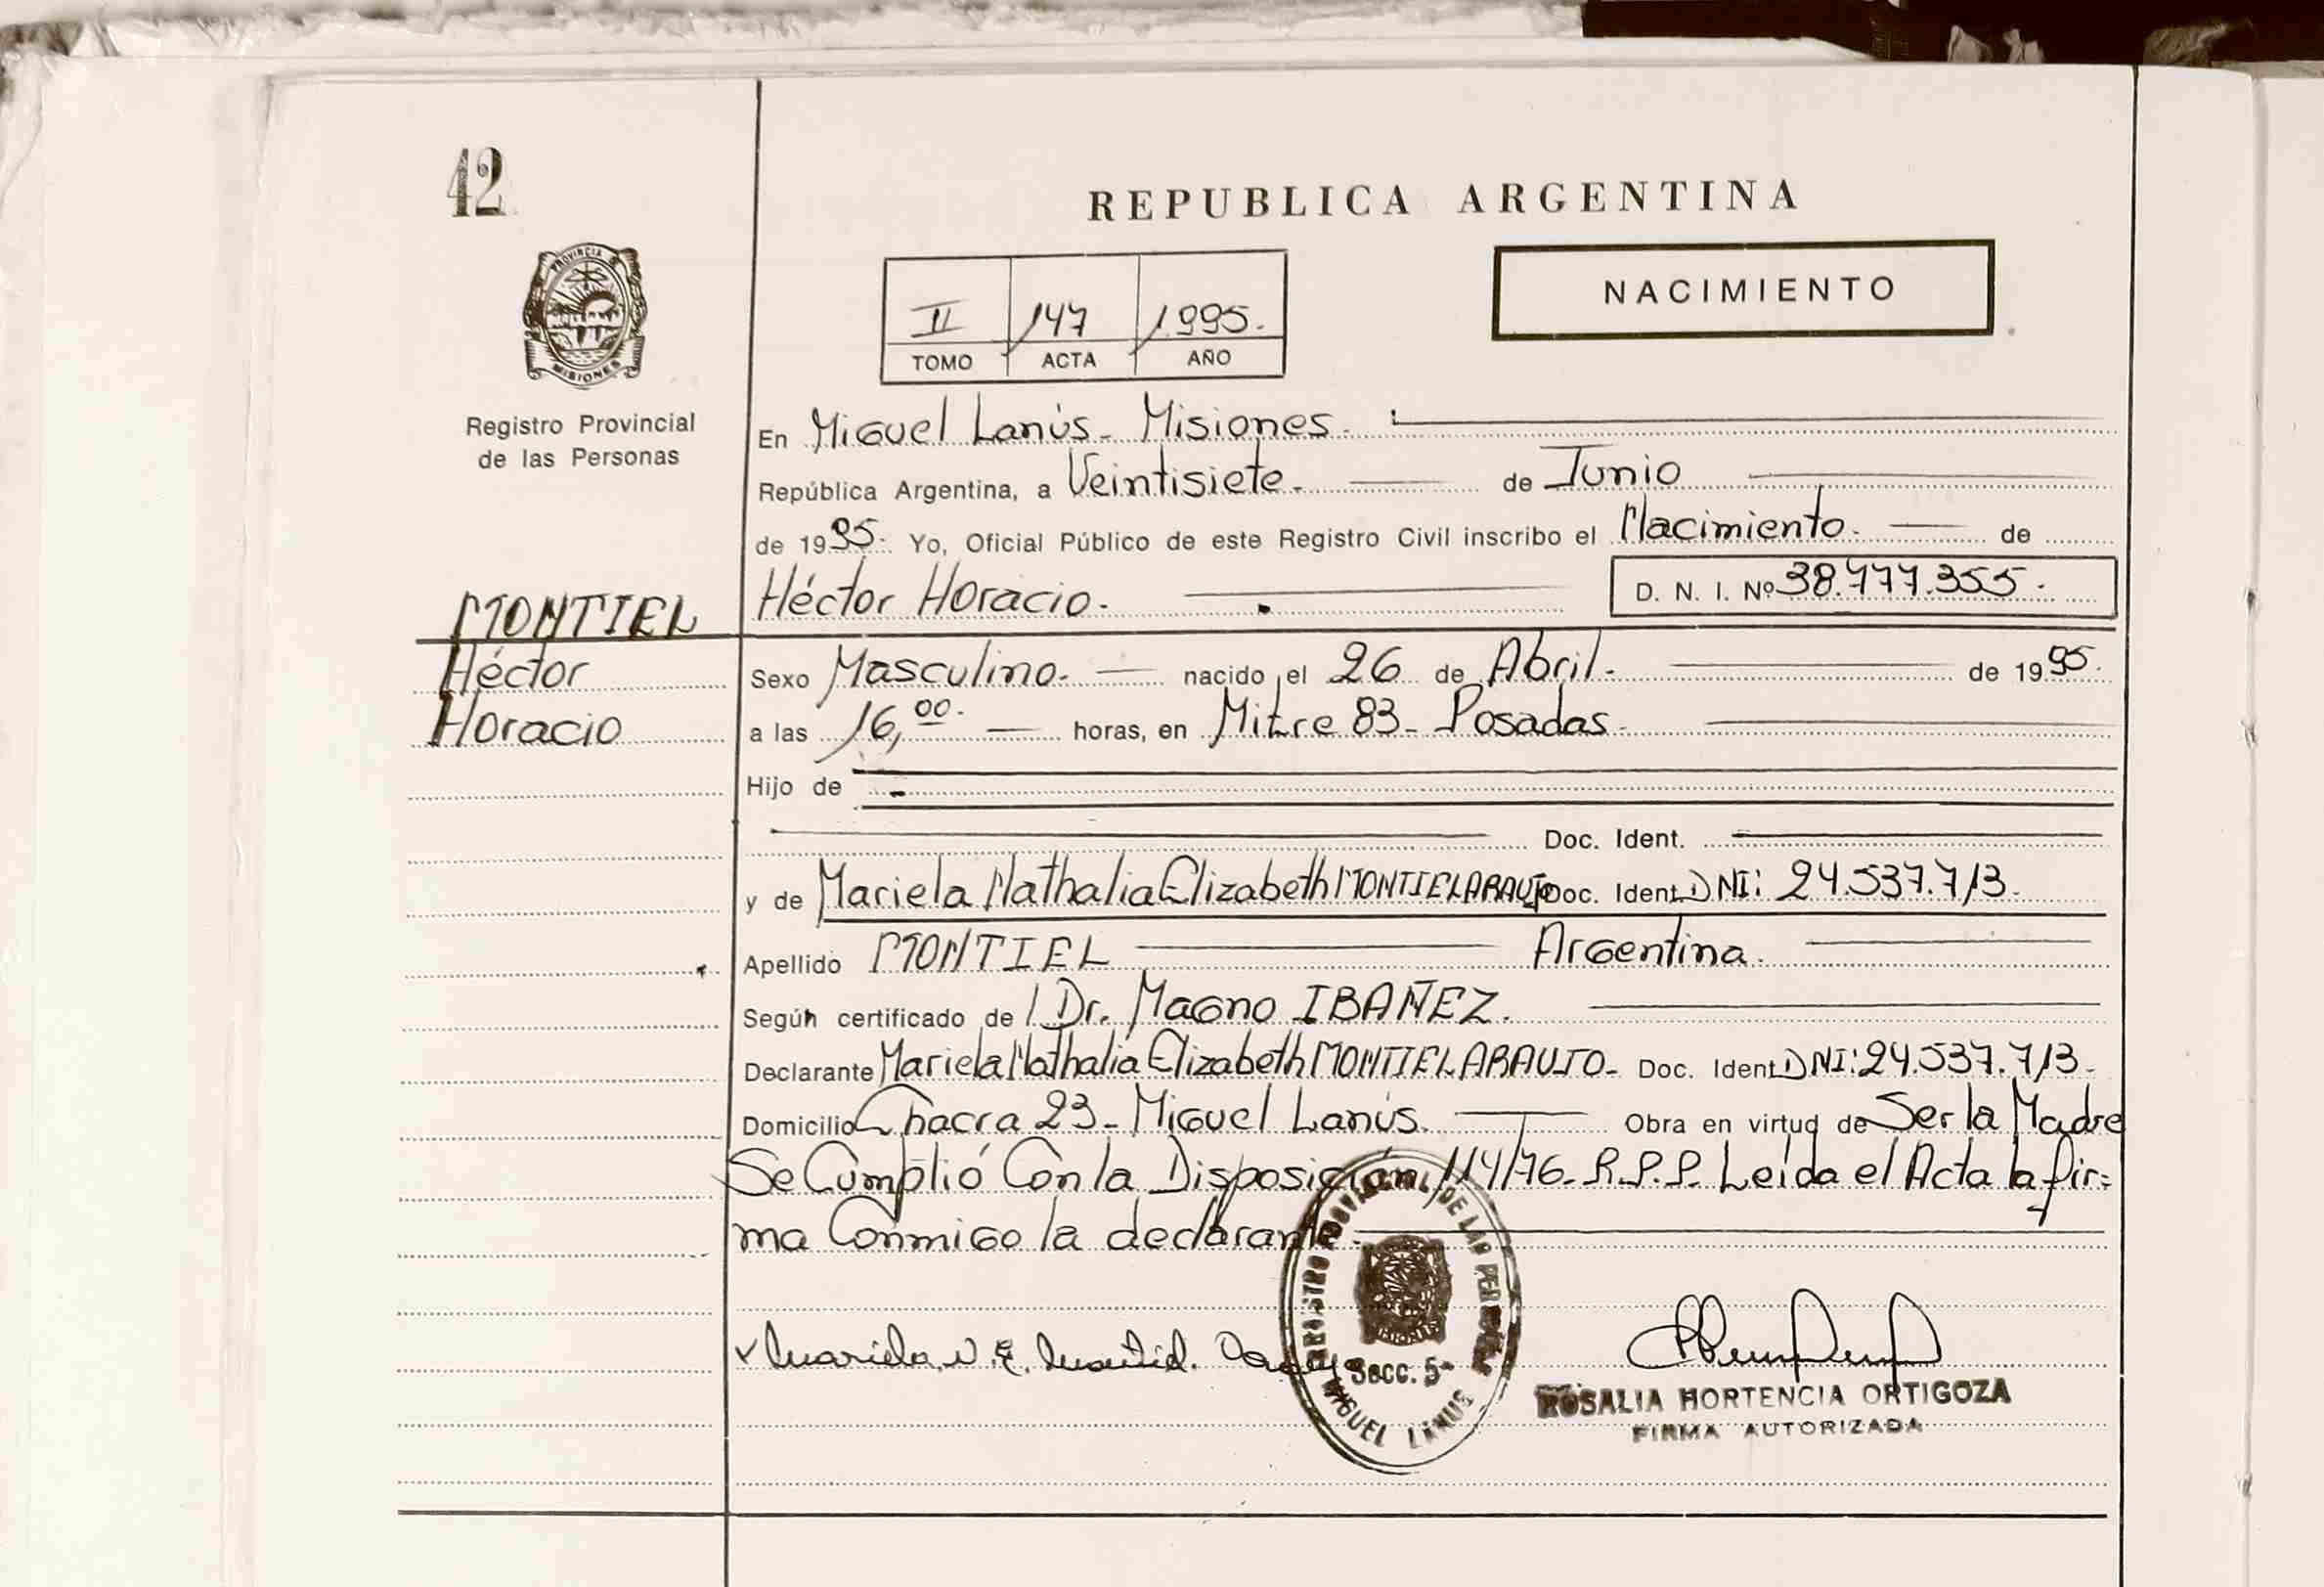 42
REPUBLICA ARGENTINA
PROVINCIA DE
MISIONES
NACIMIENTO
II 147 1995.
TOMO ACTA AÑO
Registro Provincial
de las Personas
En Miguel Lanús - Misiones.
República Argentina, a Veintisiete. de Junio
de 1995. Yo, Oficial Público de este Registro Civil inscribo el Nacimiento. de
MONTIEL
Héctor
Horacio
Héctor Horacio. D. N. I. Nº 38.777.355.
Sexo Masculino. nacido el 26 de Abril. de 1995.
a las 16,00. horas, en Mitre 83 - Posadas.
Hijo de -
Doc. Ident.
y de Mariela Nathalia Elizabeth MONTIEL ARAUJO Doc. Ident. DNI: 24.537.713.
Apellido MONTIEL Argentina.
Según certificado de Dr. Magno IBAÑEZ.
Declarante Mariela Nathalia Elizabeth MONTIEL ARAUJO - Doc. Ident. DNI: 24.537.713.
Domicilio Chacra 23 - Miguel Lanús. Obra en virtud de Ser la Madre
Se Cumplió Con la Disposición 114/76 - R.P.P. Leída el Acta la fir=
ma Conmigo la declarante.
REGISTRO PROVINCIAL DE LAS PERSONAS
Secc. 5ª
MIGUEL LANUS
ROSALIA HORTENCIA ORTIGOZA
FIRMA AUTORIZADA